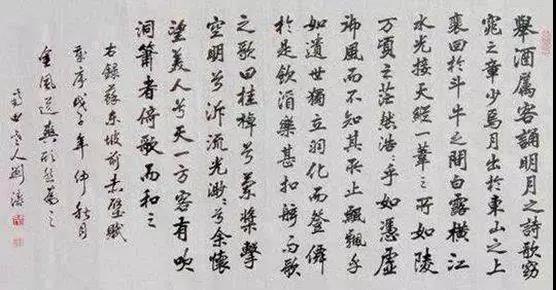 舉酒屬客誦明月之詩歌窈
窕之章少焉月出於東山之上
裵回於斗牛之間白露橫江
水光接天縱一葦之所如陵
万頃之茫然浩〻乎如憑虛
御風而不知其所止飄飄乎
如遺世獨立羽化而登僊
於是飲酒樂甚扣舷而歌
之歌曰桂棹兮蘭槳擊
空明兮泝流光渺〻兮余懷
望美人兮天一方客有吹
洞簫者倚歌而和之
右錄蘇東坡前赤壁賦
歲序戊子年仲秋月
金風送爽欣然為之
老人